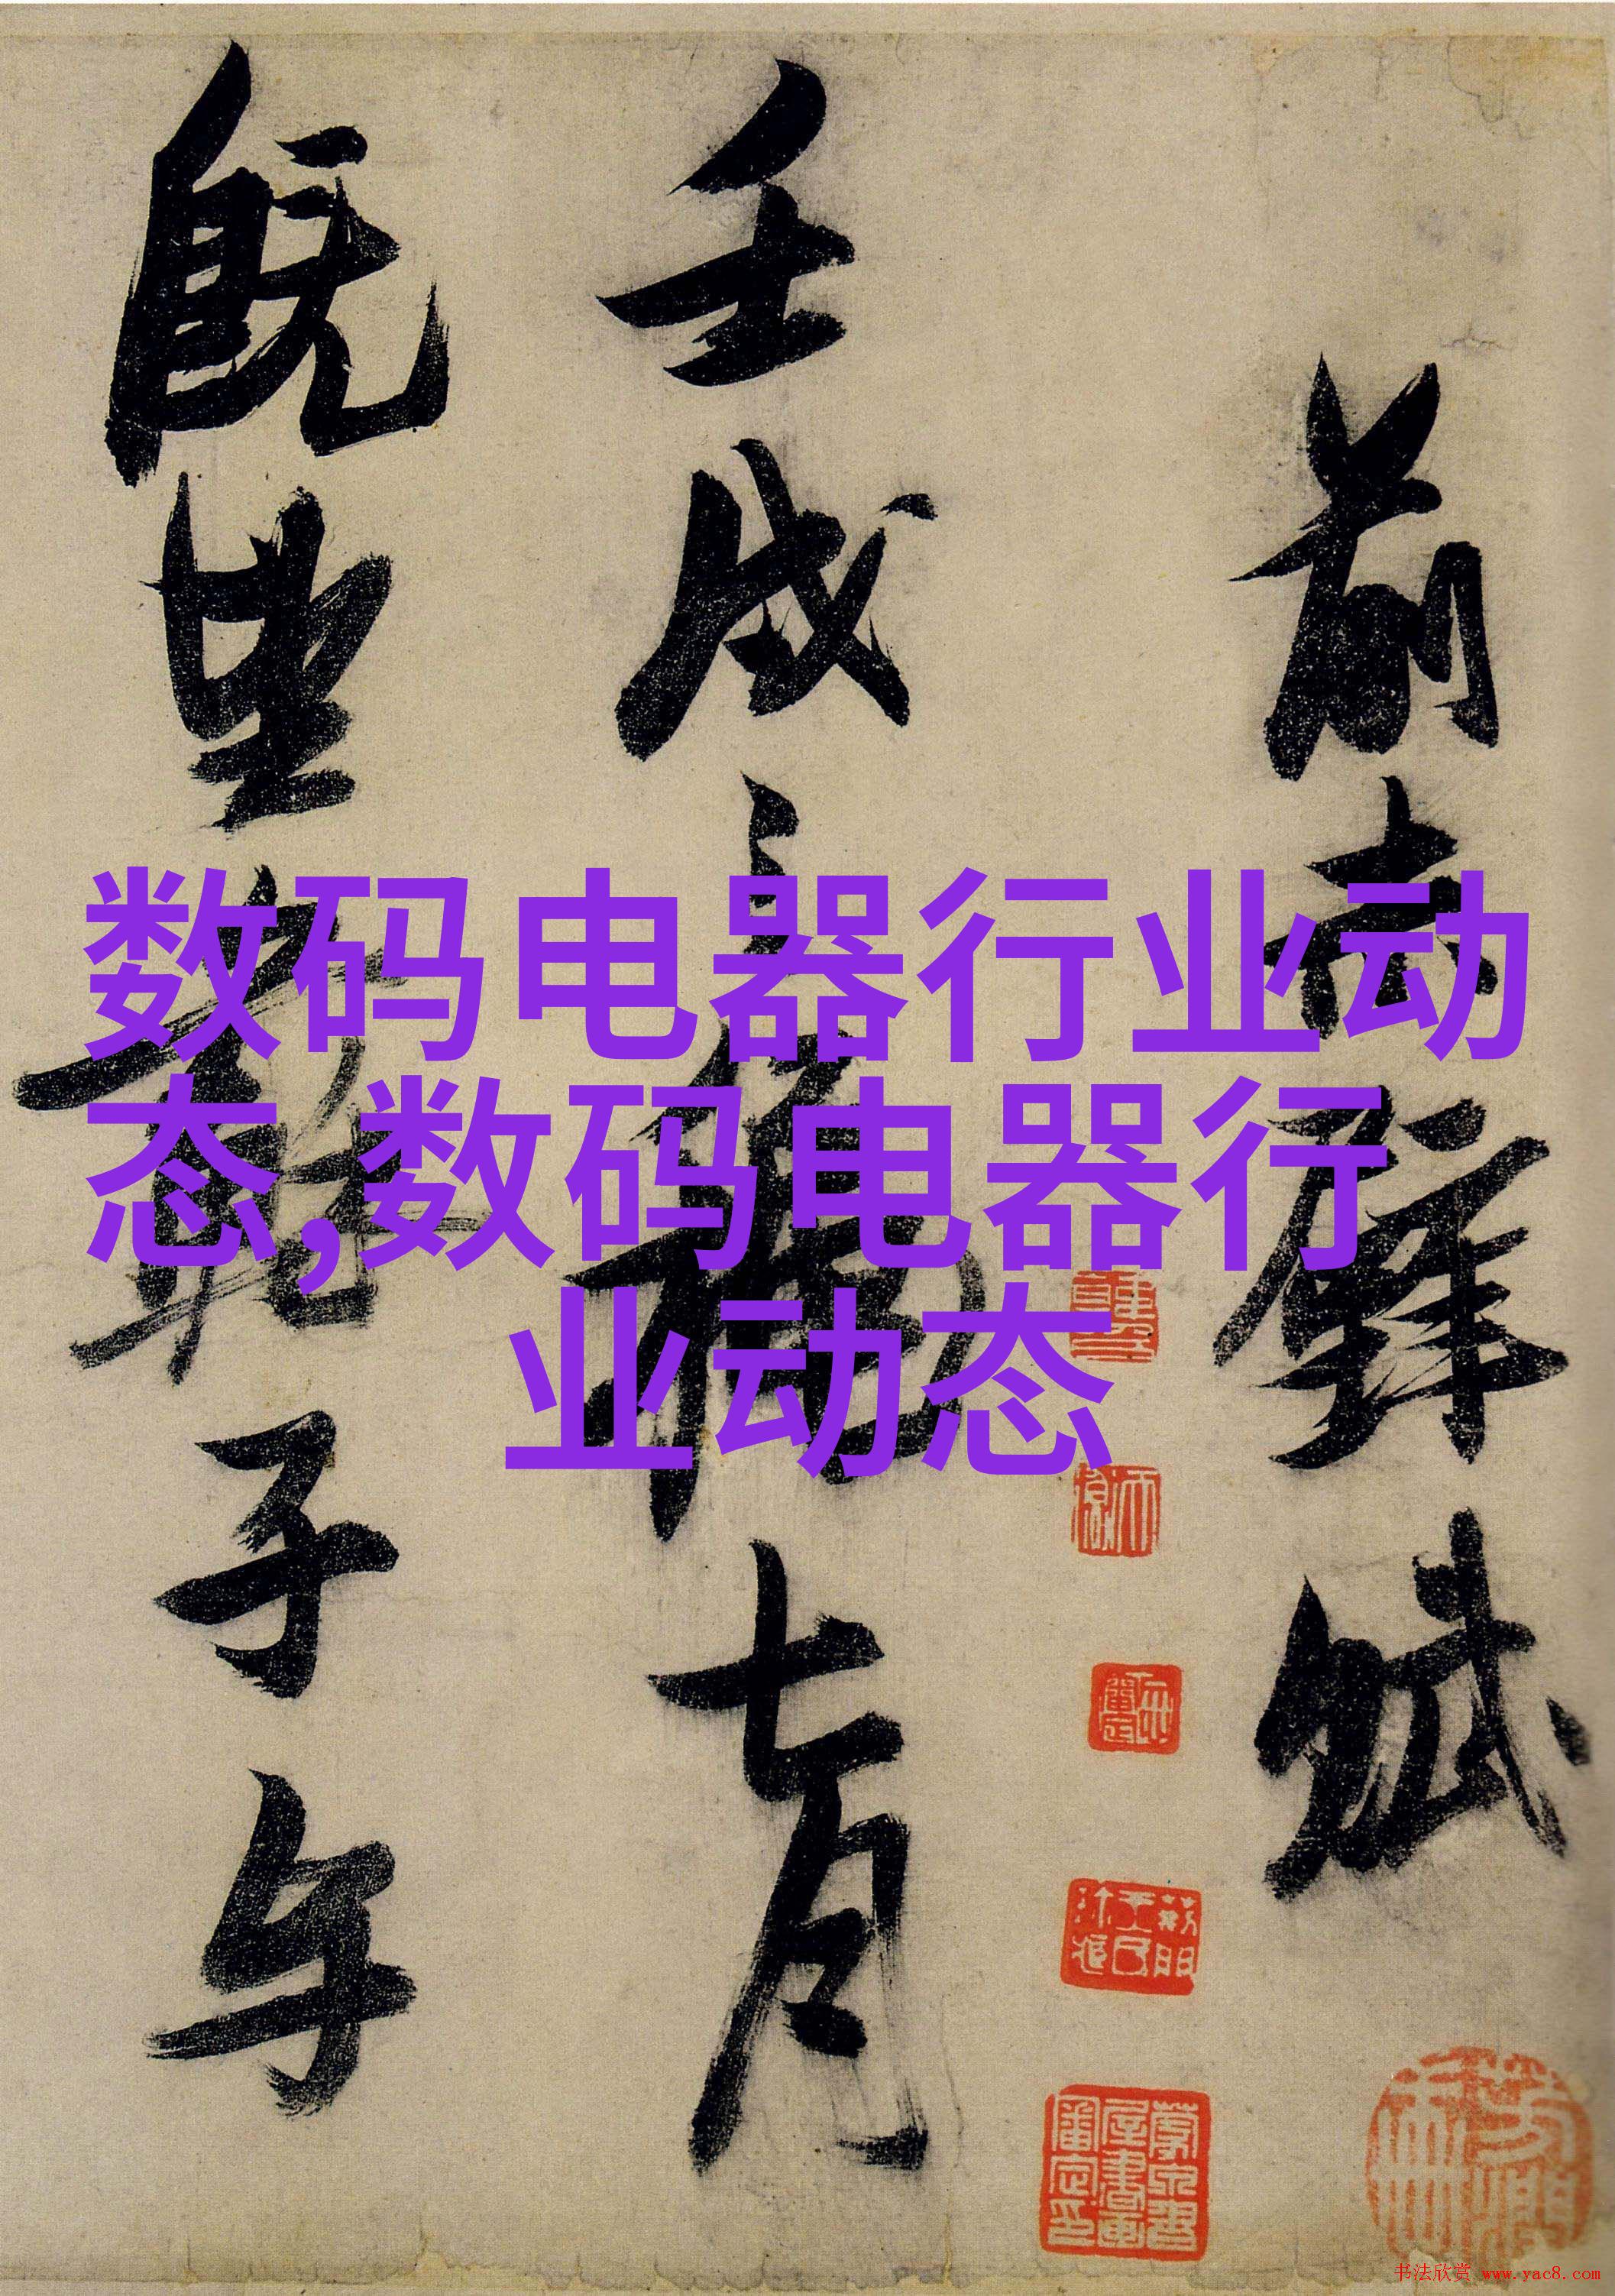 数码电器行业动
态,数码电器行
业动态
前赤壁賦
壬戌之七月
既望子与
书法欣赏 www.yac8.com